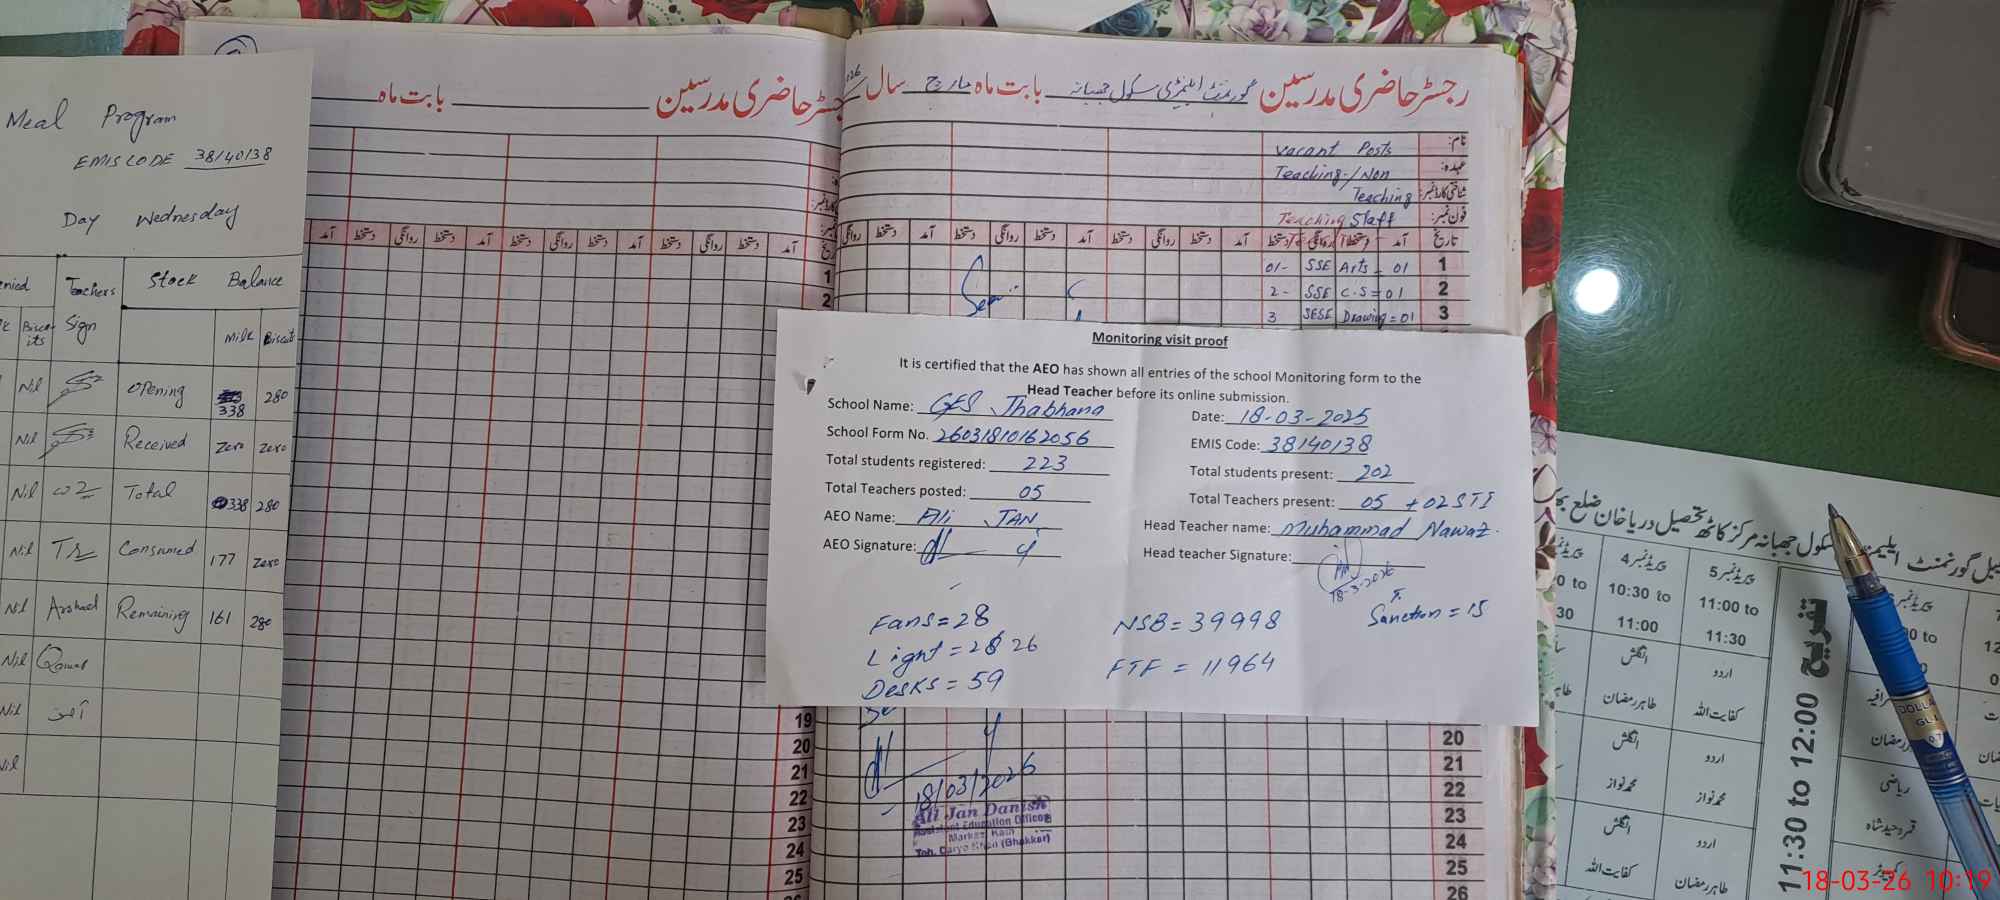 Meal Program
EMIS CODE 38140138
Day Wednesday
Teachers Sign
Stock Balance
Milk Biscuits
Nil Opening 338 280
Nil Received Zero Zero
Nil Total 338 280
Nil Consumed 177 Zero
Nil Arshad Remaining 161 280
Nil Qamar
Nil
Nil
رجسٹر حاضری مدرسین بابت ماہ
رجسٹر حاضری مدرسین گورنمنٹ ایلیمنٹری سکول جھبانہ بابت ماہ مارچ سال 2026
نام: Vacant Posts
عہدہ: Teaching/Non
شناختی کارڈ نمبر: Teaching
فون نمبر: Teaching Staff
تاریخ آمد دستخط روانگی دستخط آمد دستخط روانگی دستخط آمد دستخط روانگی
1 01- SSE Arts = 01
2 2- SSE C.S = 01
3 3 SESE Drawing = 01
1
2
Monitoring visit proof
It is certified that the AEO has shown all entries of the school Monitoring form to the
Head Teacher before its online submission.
School Name: GES Jhabhana
Date: 18-03-2025
School Form No. 26031810162056
EMIS Code: 38140138
Total students registered: 223
Total students present: 202
Total Teachers posted: 05
Total Teachers present: 05 + 02 STI
AEO Name: Ali JAN
Head Teacher name: Muhammad Nawaz.
AEO Signature:
Head teacher Signature:
18-3-2026
Fans = 28
Light = 26
Desks = 59
NSB = 39998
FTF = 11964
Sanction = 15
19
20
21
22
23
24
25
20
21
22
23
24
25
26
18/03/2026
Ali Jan Danish
Assistant Education Officer
Markaz Kath
Teh. Darya Khan (Bhakkar)
گورنمنٹ ایلیمنٹری سکول جھبانہ مرکز کاٹھ تحصیل دریا خان ضلع
پیریڈ نمبر 4
10:30 to
11:00
پیریڈ نمبر 5
11:00 to
11:30
تفریح
11:30 to 12:00
انگلش
طاہر رمضان
اردو
کفایت اللہ
انگلش
محمد نواز
اردو
محمد نواز
انگلش
کفایت اللہ
اردو
طاہر رمضان
ریاضی
قمر وحید شاہ
کمپیوٹر
DOLLAR
GLI
0.7
18-03-26 10:19